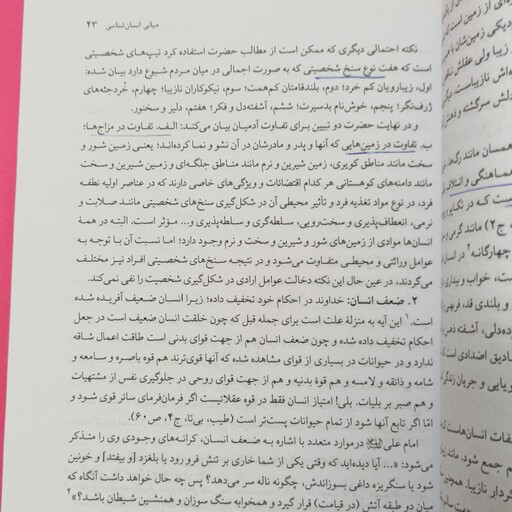 مبانی انسان‌شناسی ۲۳
نکته احتمالی دیگری که ممکن است از مطالب حضرت استفاده کرد تیپ‌های شخصیتی
است که هفت نوع سنخ شخصیتی که به صورت اجمالی در میان مردم شیوع دارد بیان شده:
اول، زیبارویان کم خرد؛ دوم، بلندقامتان کم‌همت؛ سوم، نیکوکاران نازیبا؛ چهارم، خُردجثه‌های
ژرف‌نگر؛ پنجم، خوش‌نام بدسیرت؛ ششم، آشفته‌دل و فکر؛ هفتم، دلیر و سخنور.
و در نهایت حضرت دو تبیین برای تفاوت آدمیان بیان می‌کنند: الف. تفاوت در مزاج‌ها؛
ب. تفاوت در زمین‌هایی که آنها و پدر و مادرشان در آن نشو و نما کرده‌اند؛ یعنی زمین شور و
سخت مانند مناطق کویری، زمین شیرین و نرم مانند مناطق جلگه‌ای و زمین شیرین و سخت
مانند دامنه‌های کوهستانی هر کدام اقتضائات و ویژگی‌های خاصی دارند که در عناصر اولیه نطفه
فرد، در نوع مواد تغذیه فرد و تأثیر محیطی آن در شکل‌گیری سنخ‌های شخصیتی مانند صلابت و
نرمی، انعطاف‌پذیری و سخت‌رویی، سلطه‌گری و سلطه‌پذیری و... مؤثر است. البته در همهٔ
انسان‌ها موادی از زمین‌های شور و شیرین و سخت و نرم وجود دارد؛ اما نسبت آن با توجه به
عوامل وراثتی و محیطی متفاوت می‌شود و در نتیجه سنخ‌های شخصیتی افراد نیز مختلف
می‌گردند، در عین حال این نکته دخالت عوامل ارادی در شکل‌گیری شخصیت را نفی نمی‌کند.
۲. ضعف انسان: خداوند در احکام خود تخفیف داده؛ زیرا انسان ضعیف آفریده شده
است.۱ این آیه به منزلهٔ علت است برای جمله قبل که چون خلقت انسان ضعیف است در جعل
احکام تخفیف داده شده و چون ضعف انسان هم از جهت قوای بدنی است طاقت اعمال شاقه
ندارد و در حیوانات در بسیاری از قوای مشاهده شده که آنها قوی‌ترند هم قوه باصره و سامعه و
شامه و ذائقه و لامسه و هم قوهٔ بدنیه و هم از جهت قوای روحی در جلوگیری نفس از مشتهیات
و هم صبر بر بلیات. بلی! امتیاز انسان فقط در قوه عقلانیست اگر فرمان‌فرمای سائر قوی شود و
امّا اگر تابع آنها شود از تمام حیوانات پست‌تر است (طیب، بی‌تا، ج۴، ص۶۰).
امام علی در موارد متعدد با اشاره به ضعف انسان، کرانه‌های وجودی وی را متذکر
می‌شود: «... آیا دیده‌اید که وقتی یکی از شما خاری بر تنش فرو رود یا بلغزد [و بیفتد] و خونین
شود یا سنگریزه داغی بسوزاندش، چگونه ناله سر می‌دهد؟ پس چه حال خواهد داشت آنگاه که
میان دو طبقه آتش (در قیامت) قرار گیرد و همخوابه سنگ سوزان و همنشین شیطان باشد؟»۲